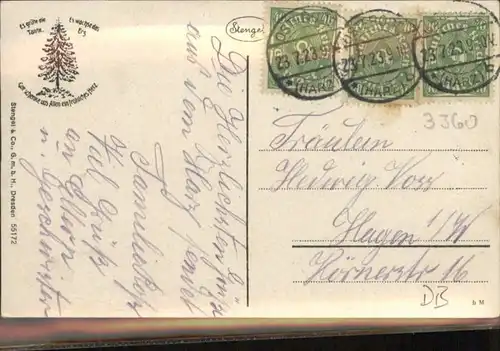 Es grüne die Tanne,
Es wachse das Erz
Gott schenke uns Allen ein fröhliches Herz
Stengel
Stengel & Co., G. m. b. H., Dresden 55172
Die herzlichsten
aus dem Harz sendet
Familie
Viel Grüße
an Eltern
u. Geschwister
(HARZ)
23.7.23.9-10
(HARZ)
23.7.23.9-10
(HARZ)
3360
Fräulein
Hedwig Voss
Hagen i/W
Körnerstr 16
DB
b M